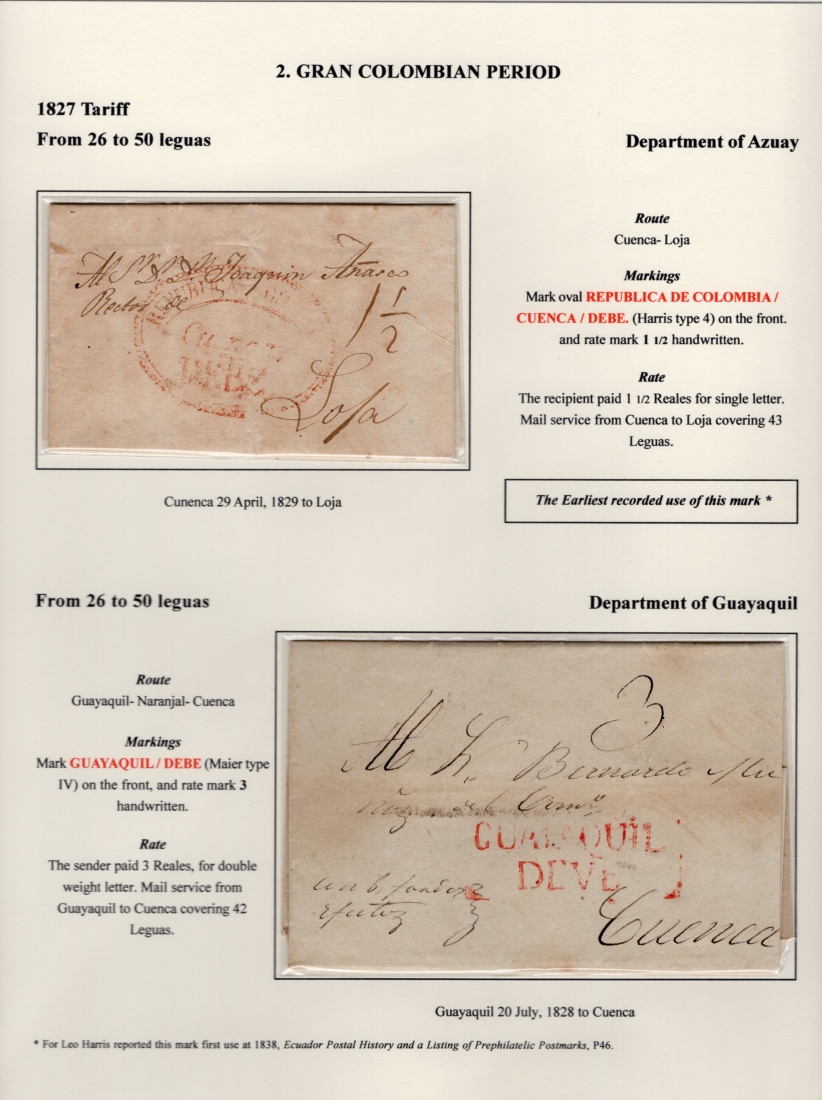 2. GRAN COLOMBIAN PERIOD
1827 Tariff
From 26 to 50 leguas
Department of Azuay
Al Sr. Dr. Dn. Joaquin Añasco
Rector de
1 1/2
REPUBLICA
Cuenca
DEBE
Loja
Route
Cuenca- Loja
Markings
Mark oval REPUBLICA DE COLOMBIA /
CUENCA / DEBE. (Harris type 4) on the front.
and rate mark 1 1/2 handwritten.
Rate
The recipient paid 1 1/2 Reales for single letter.
Mail service from Cuenca to Loja covering 43
Leguas.
Cunenca 29 April, 1829 to Loja
The Earliest recorded use of this mark *
From 26 to 50 leguas
Department of Guayaquil
Route
Guayaquil- Naranjal- Cuenca
Markings
Mark GUAYAQUIL / DEBE (Maier type
IV) on the front, and rate mark 3
handwritten.
Rate
The sender paid 3 Reales, for double
weight letter. Mail service from
Guayaquil to Cuenca covering 42
Leguas.
3
Al Sr. Bernardo
GUAYAQUIL
DEVE
Cuenca
Guayaquil 20 July, 1828 to Cuenca
* For Leo Harris reported this mark first use at 1838, Ecuador Postal History and a Listing of Prephilatelic Postmarks, P46.